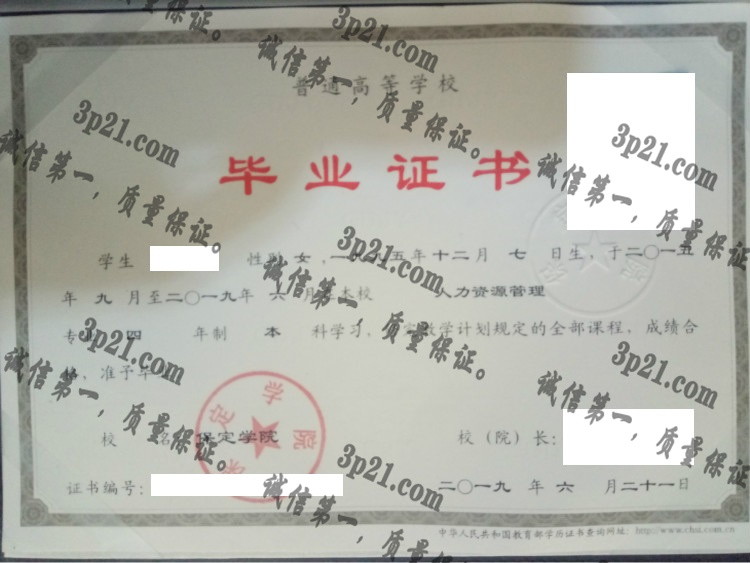 普通高等学校
毕业证书
学生 性别 女，一九九五年十二月 七 日生，于二〇一五
年 九 月至二〇一九年 六 月 本校 人力资源管理
专 四 年制 本 科学习， 教学计划规定的全部课程，成绩合
，准予毕
校 名 保定学院 校（院）长：
证书编号： 二〇一九 年 六 月二十一日
中华人民共和国教育部学历证书查询网址：http://www.chsi.com.cn
保定学院
3p21.com
诚信第一，质量保证。
3p21.com
诚信第一，质量保证。
3p21.com
诚信第一，质量保证。
3p21.com
诚信第一，质量保证。
3p21.com
诚信第一，质量保证。
3p21.com
诚信第一，质量保证。
3p21.com
诚信第一，质量保证。